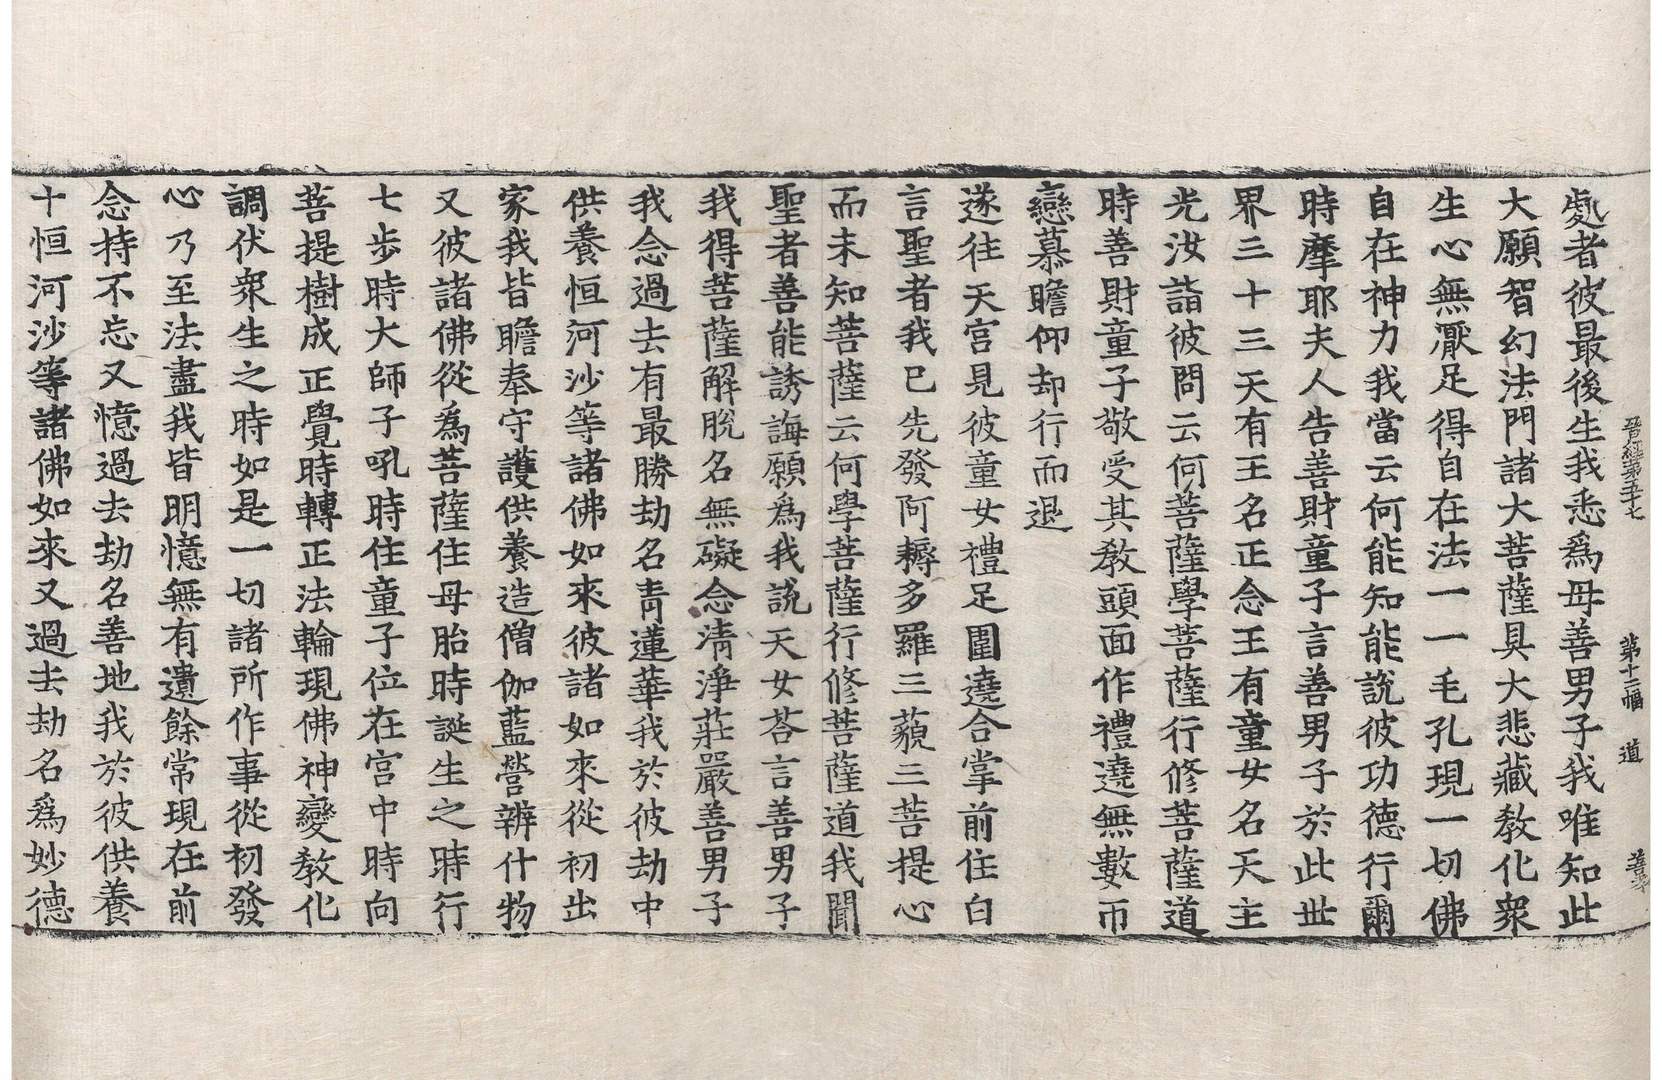 晉經第五十七 第十二幅 道 善孚
處者彼最後生我悉爲母善男子我唯知此
大願智幻法門諸大菩薩具大悲藏教化衆
生心無猒足得自在法一一毛孔現一切佛
自在神力我當云何能知能說彼功德行爾
時摩耶夫人告善財童子言善男子於此世
界三十三天有王名正念王有童女名天主
光汝詣彼問云何菩薩學菩薩行修菩薩道
時善財童子敬受其教頭面作禮遶無數帀
戀慕瞻仰却行而退
遂往天宮見彼童女禮足圍遶合掌前住白
言聖者我已先發阿耨多羅三藐三菩提心
而未知菩薩云何學菩薩行修菩薩道我聞
聖者善能誘誨願爲我說天女荅言善男子
我得菩薩解脫名無礙念清淨莊嚴善男子
我念過去有最勝劫名靑蓮華我於彼劫中
供養恒河沙等諸佛如來彼諸如來從初出
家我皆瞻奉守護供養造僧伽藍營辦什物
又彼諸佛從爲菩薩住母胎時誕生之時行
七步時大師子吼時住童子位在宮中時向
菩提樹成正覺時轉正法輪現佛神變教化
調伏衆生之時如是一切諸所作事從初發
心乃至法盡我皆明憶無有遺餘常現在前
念持不忘又憶過去劫名善地我於彼供養
十恒河沙等諸佛如來又過去劫名爲妙德